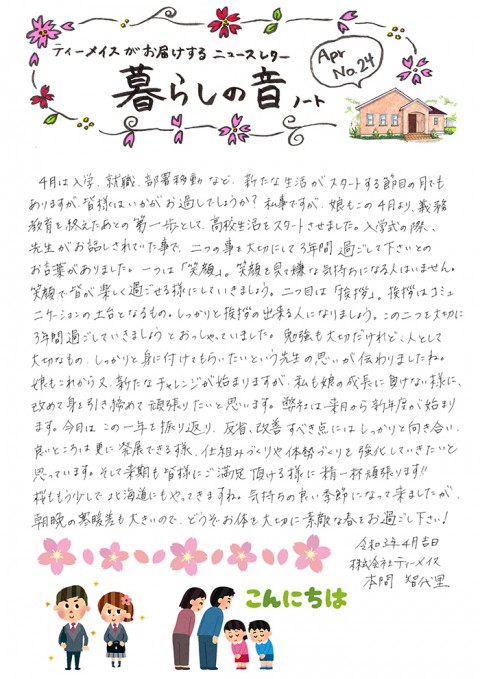 ティーメイスがお届けする ニュースレター
Apr
No.24
暮らしの音ノート
4月は入学、就職、部署移動など、新たな生活がスタートする節目の月でも
ありますが、皆様はいかがお過しでしょうか？私事ですが、娘もこの4月より、義務
教育を終えたあとの第一歩として、高校生活をスタートさせました。入学式の際、
先生がお話しされていた事で、二つの事を大切にして3年間過ごして下さいとの
お言葉がありました。一つは「笑顔」。笑顔を見て嫌な気持ちになる人はいません。
笑顔で皆が楽しく過ごせる様にしていきましょう。二つ目は「挨拶」。挨拶はコミュ
ニケーションの土台となるもの。しっかりと挨拶の出来る人になりましょう。この二つを大切に
3年間過ごしていきましょうとおっしゃっていました。勉強も大切だけれど、人として
大切なもの、しっかりと身に付けてもらいたいという先生の思いが伝わりましたね。
娘もこれから又、新たなチャレンジが始まりますが、私も娘の成長に負けない様に、
改めて身を引き締めて頑張りたいと思います。弊社は来月から新年度が始まり
ます。今月はこの一年を振り返り、反省、改善すべき点にはしっかりと向き合い、
良いところは更に発展できる様、仕組みづくりや体勢づくりを強化していきたいと
思っています。そして来期も皆様にご満足頂ける様に精一杯頑張ります!!
桜ももう少しで北海道にもやってきますね。気持ちの良い季節になって来ましたが、
朝晩の寒暖差も大きいので、どうぞお体を大切に素敵な春をお過ごし下さい！
令和3年4月吉日
株式会社ティーメイス
本間 智代里
こんにちは